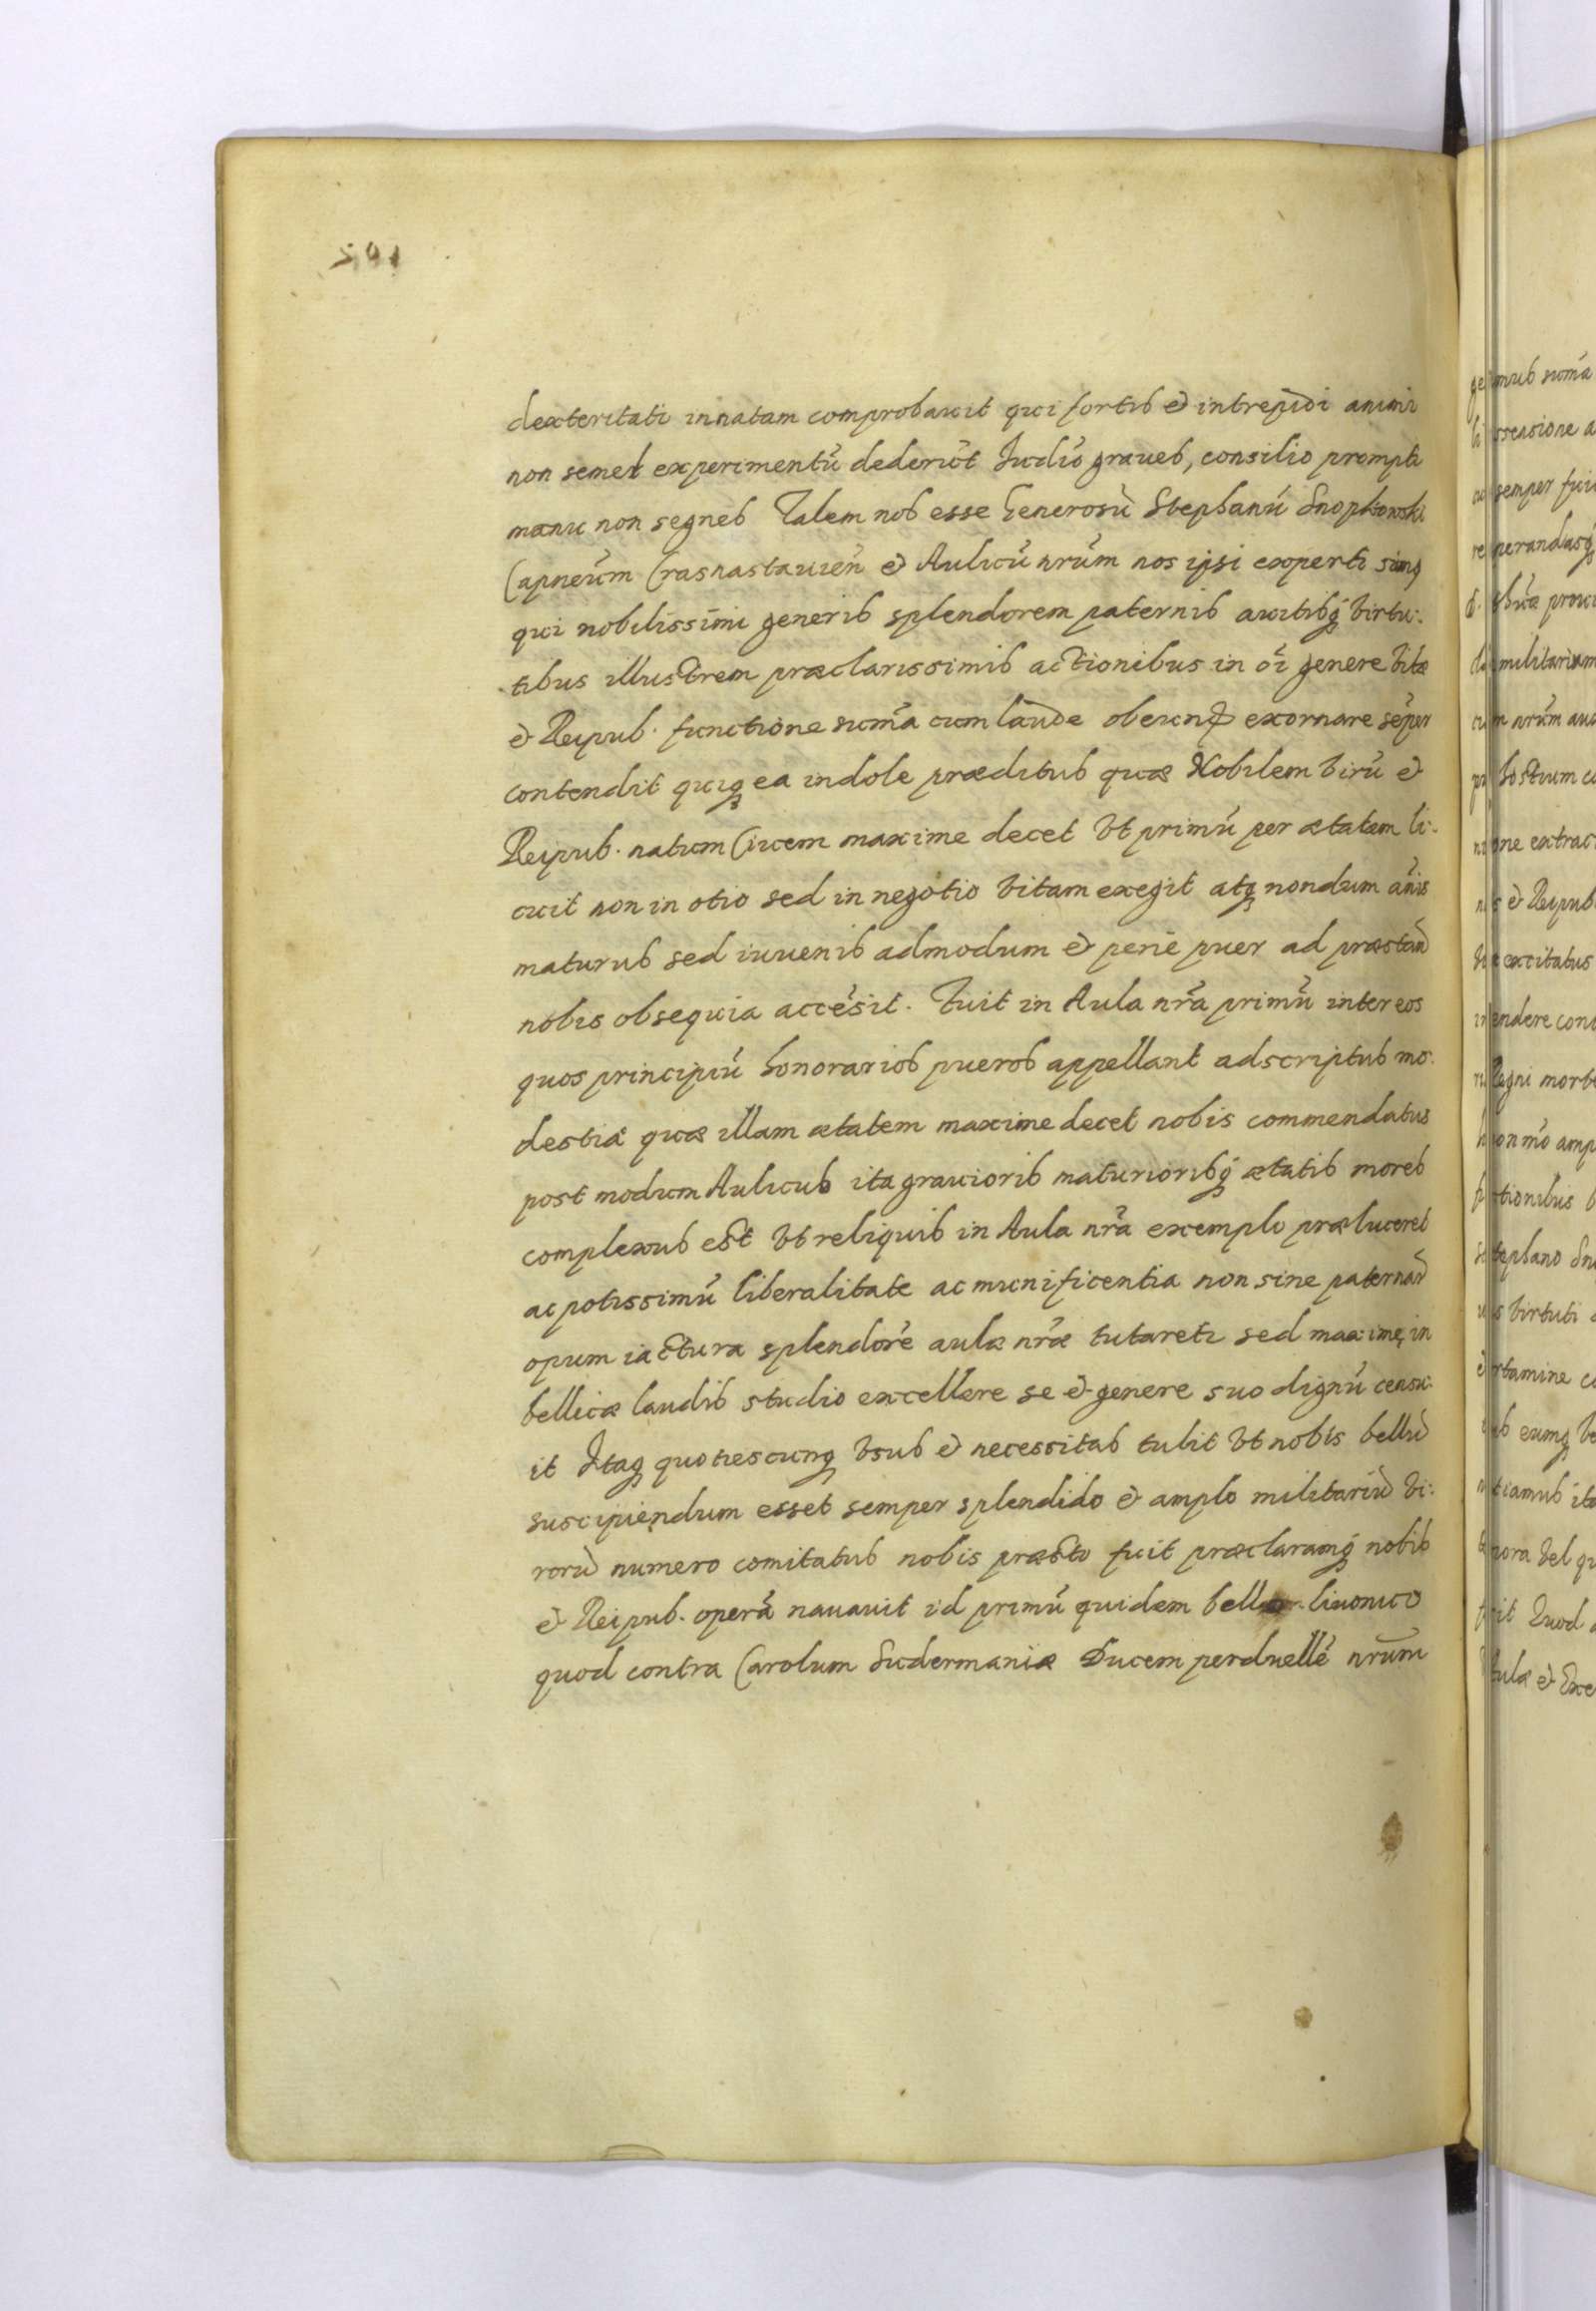 501
dexteritati innatam comprobauit qui fortis & intrepidi animi
non semel experimentũ dederũt Iudiõ graues, consilio prompti
manu non segnes Talem nos esse Generosũ Stephanũ Snopkowski
Capneũm Crasnastauieñ & Aulicũ nrũm nos ipsi experti simq
qui nobilissimi generis splendorem paternis auitisq́ virtu:
tibus illustrem præclarissimis actionibus in oĩ genere vitæ
& Reipub. functione suma᷃ cum laude obeunđ exornare sẽper
contendit quiq ea indole præditus quæ Nobilem virũ &
Reipub. natum Ciuem maxime decet Vt primũ per ætatem li:
cuit non in otio sed in negotio vitam exegit atq nondum añis
maturus sed iuuenis admodum & penè puer ad præstañd
nobis obsequia accẽsit. Fuit in Aula nr̃a primũ inter eos
quos principiũ honorarios pueros appellant adscriptus mo:
destiâ quæ illam ætatem maxime decet nobis commendatus
post modum Aulicus ita grauioris maturiorisq́ ætatis mores
complexus est Vt reliquis in Aula nr̃a exemplo præluceret
ac potissimũ liberalitate ac munificentia non sine paternar̃
opum iactura splendorẽ aulæ nr̃æ tutaretr sed maxime, in
bellicæ laudis studio excellere se & genere suo dignũ censu:
it Itaq quotiescunq vsus & necessitas tulit Vt nobis bellũ
suscipiendum esset semper splendido & amplo militariũ vi:
rorũ numero comitatus nobis præsto fuit præclaramq́ nobis
& Reipub. operã nauauit id primũ quidem bello liuonico
quod contra Carolum Sudermaniæ Ducem perduellẽ nrũm